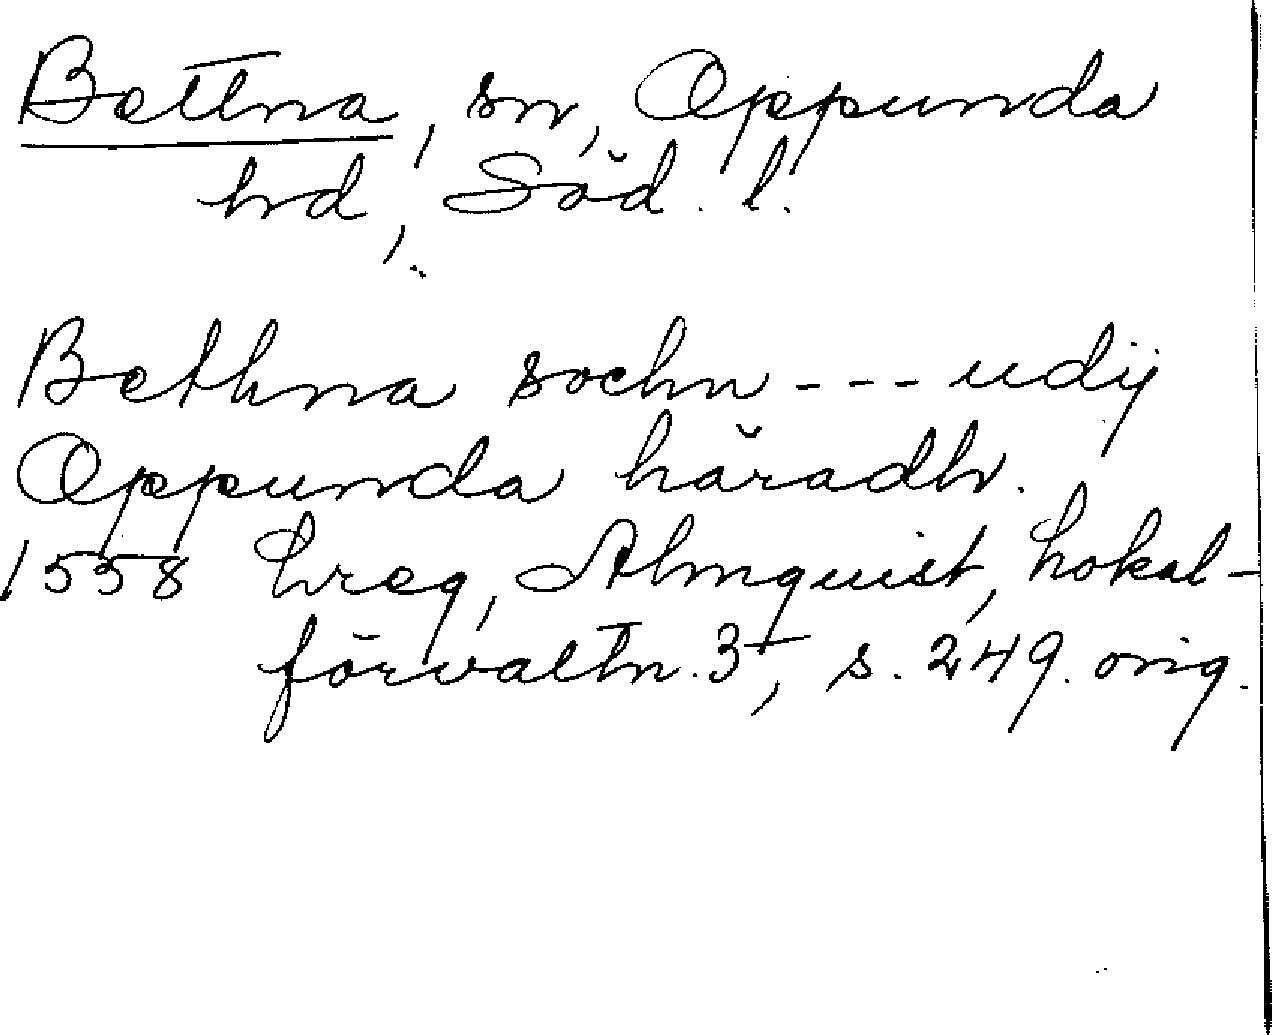 Bettna, sn, Oppunda
hd, Söd. l.
Bethna sochn --- udij
Oppunda häradh.
1558 hreg, Almquist, Lokal-
förvaltn. 3, s. 249. orig.